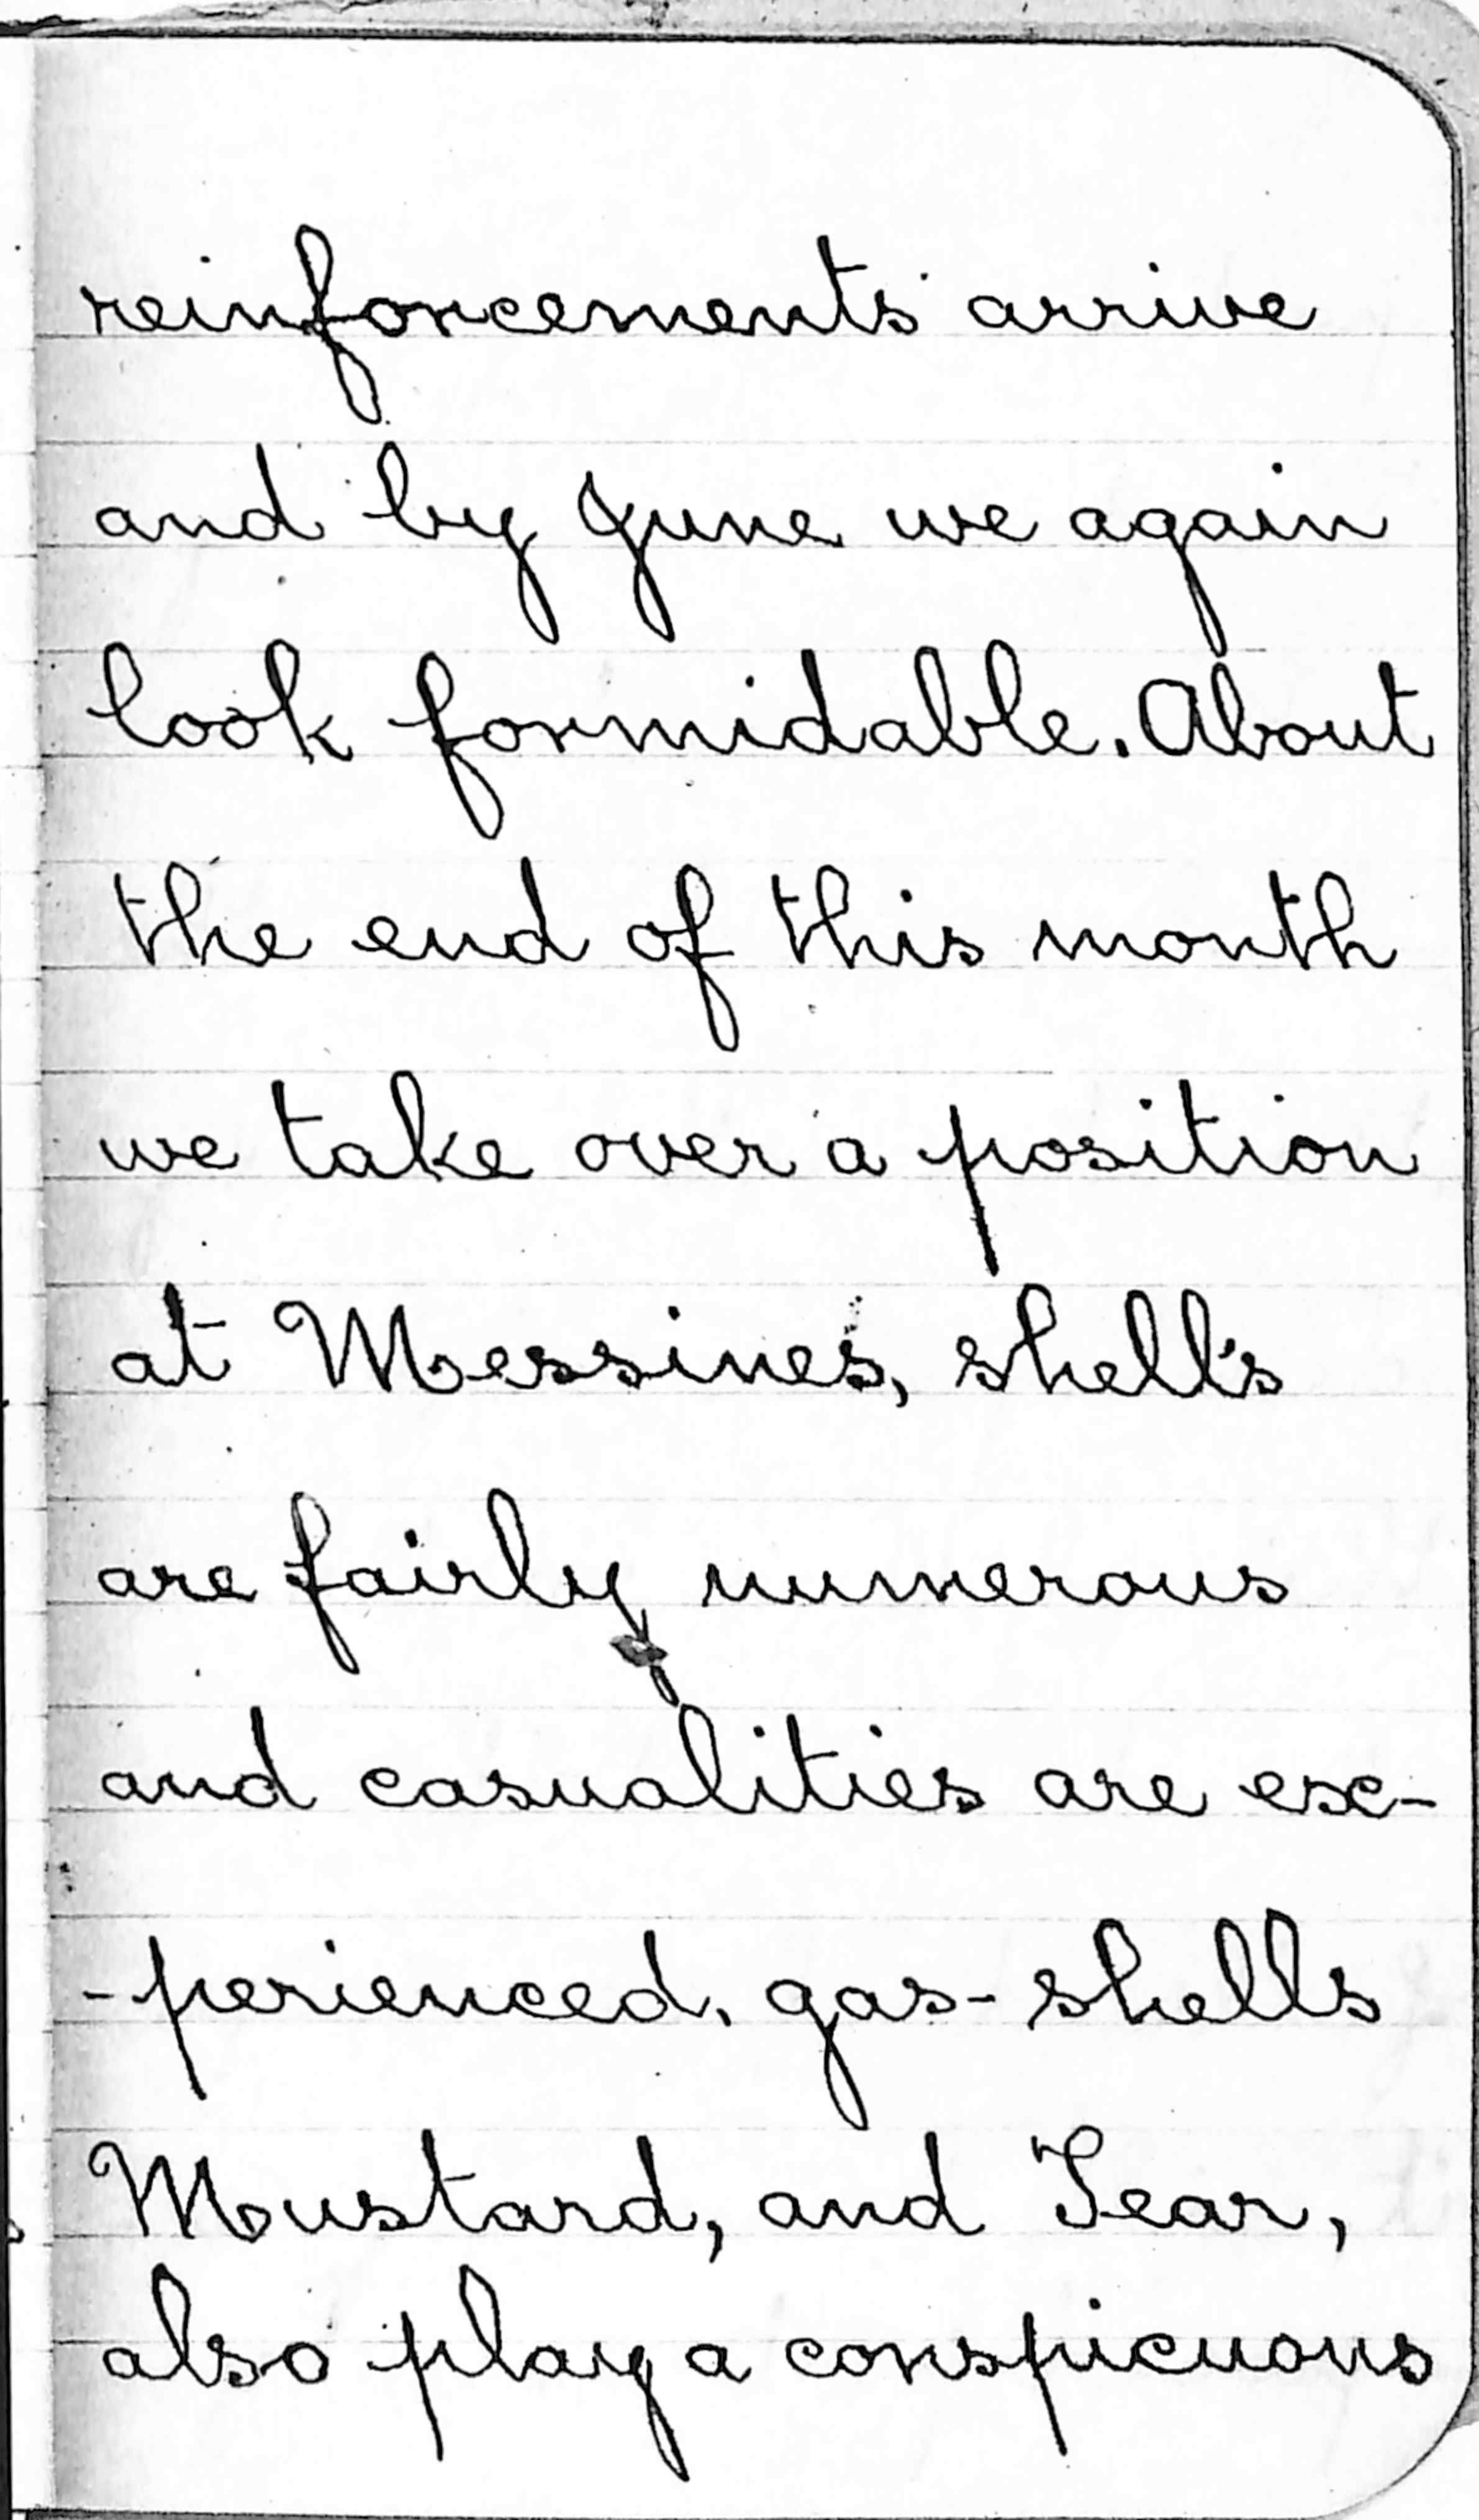 reinforcements arrive
and by June we again
look formidable. About
the end of this month
we take over a position
at Messines, shell's
are fairly numerous
and casualities are exc-
-perienced. gas-shells
Mustard, and Tear,
also play a conspicuous